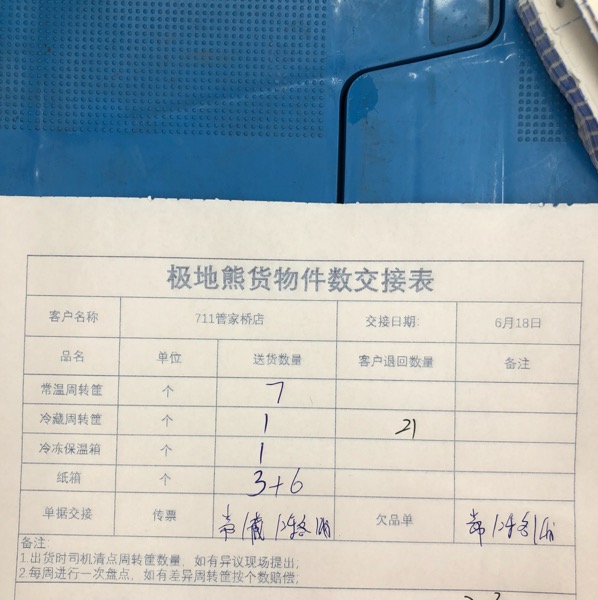 极地熊货物件数交接表
客户名称 711管家桥店 交接日期: 6月18日
品名 单位 送货数量 客户退回数量 备注
常温周转筐 个 7
冷藏周转筐 个 1 21
冷冻保温箱 个 1
纸箱 个 3+6
单据交接 传票 欠品单
备注:
1.出货时司机清点周转筐数量，如有异议现场提出;
2.每周进行一次盘点，如有差异周转筐按个数赔偿;